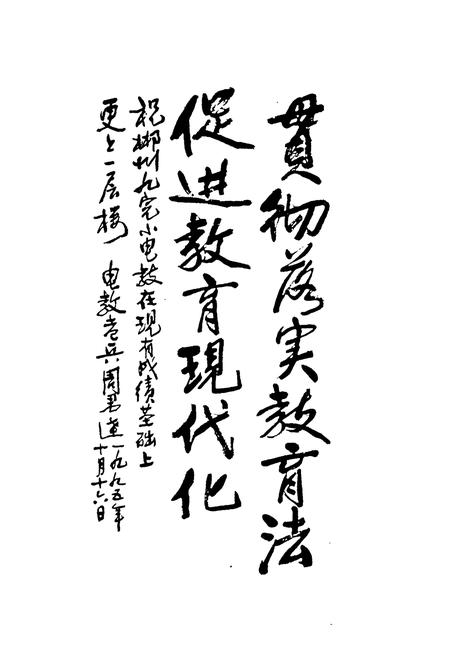 貫彻落实教育法
促进教育現代化
祝郴州九完小电教在現有成绩基础上
更上一层楼 电教老兵周君达一九九五年
十月十六日